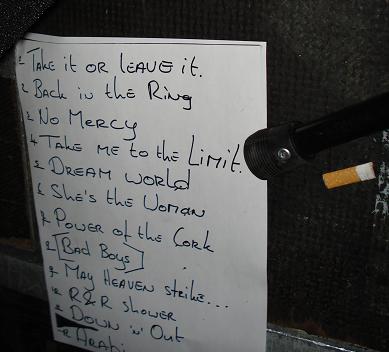 1 Take it or leave it.
2 Back in the Ring
3 No Mercy
4 Take me to the Limit.
5 Dream world
6 She's the Woman
7 Power of the Cork
8 [Bad Boys]
9 May Heaven strike...
10 R&R Shower
11 Down 'n' Out
12